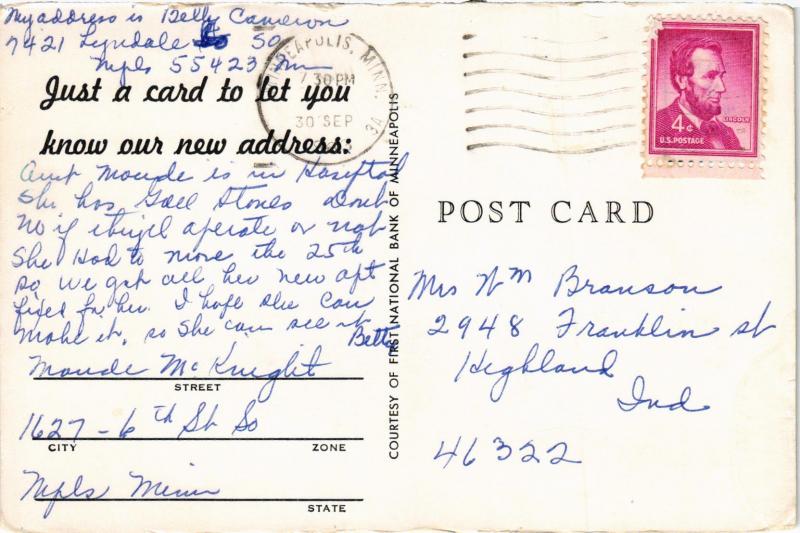 My address is Betty Cameron
7421 Lyndale So
Mpls 55423 Mn
Just a card to let you
know our new address:
Aunt Maude is in Hospital
She has Gall Stones dont
No if they'l operate or not
She Had to move the 25th
so we got all her new apt
fixed for her. I hope she can
make it, so she can see it
Betty
Maude McKnight
STREET
1627-6th St So
CITY ZONE
Mpls Minn
STATE
COURTESY OF FIRST NATIONAL BANK OF MINNEAPOLIS
MINNEAPOLIS, MINN.
7 30 PM
30 SEP
LINCOLN
4¢
U.S. POSTAGE
POST CARD
Mrs Wm Branson
2948 Franklin st
Highland
Ind
46322